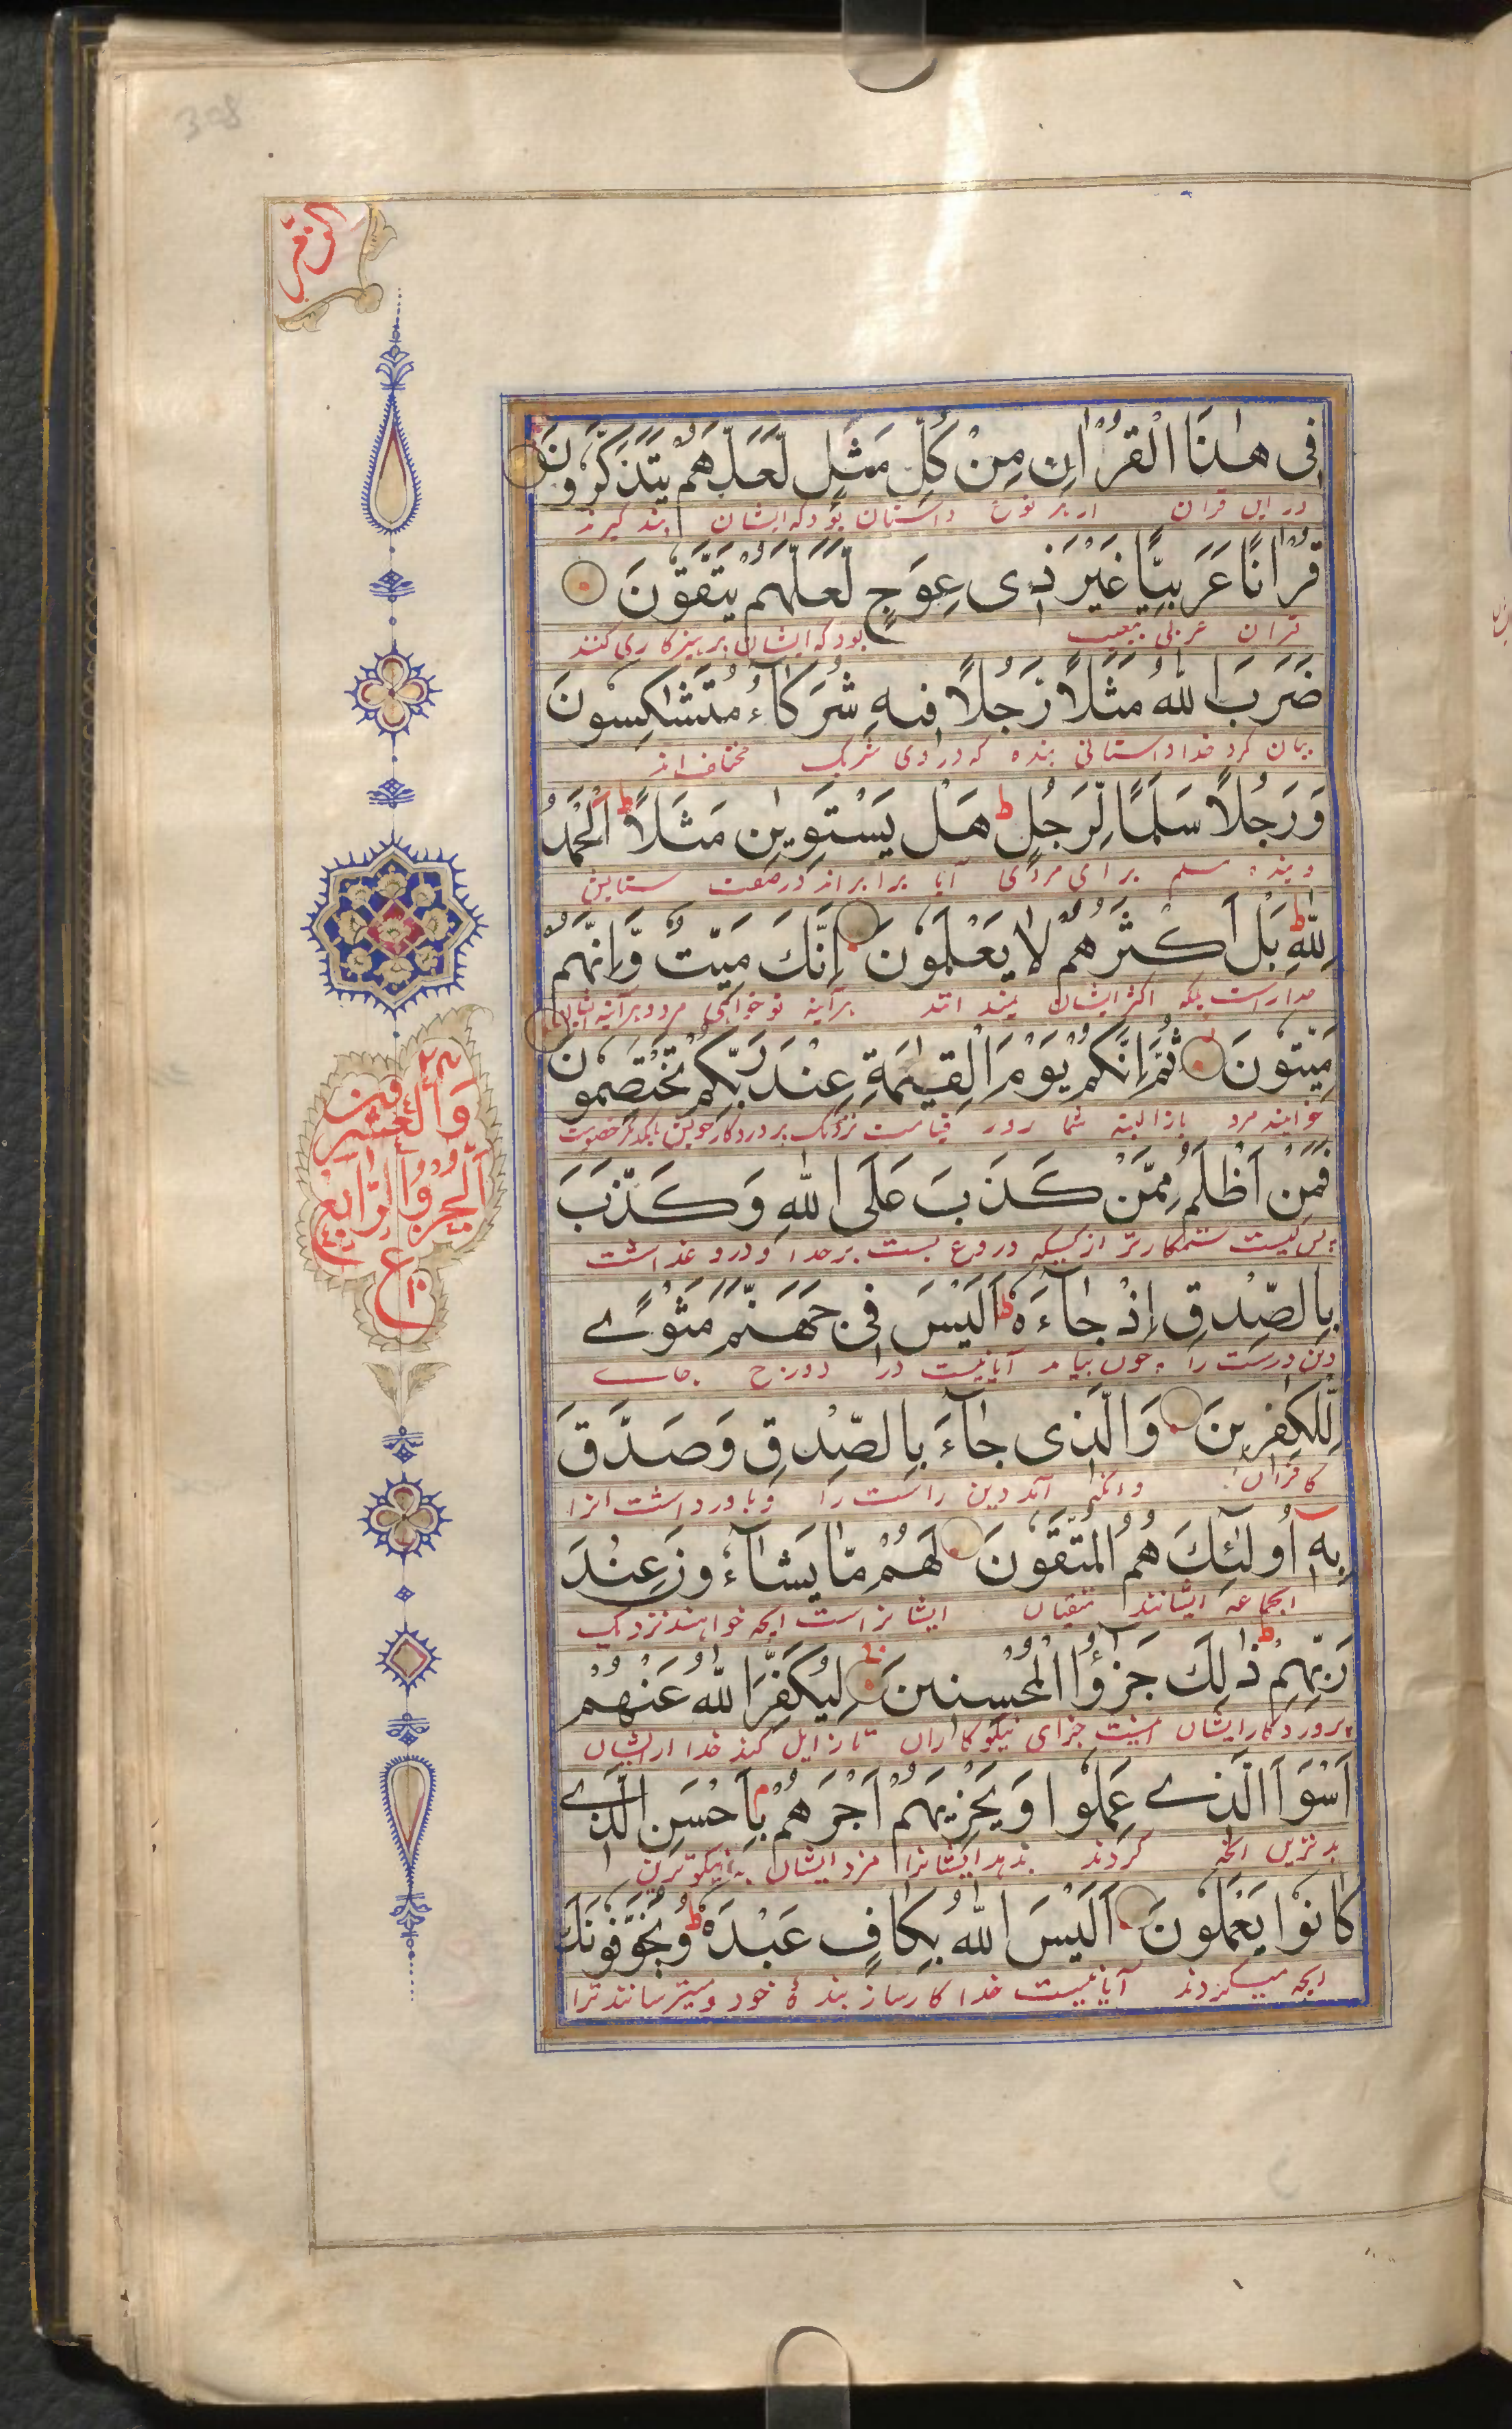 308
الزمر
فِی هٰذَا الْقُرْاٰنِ مِنْ کُلِّ مَثَلٍ لَّعَلَّهُمْ یَتَذَکَّرُوْنَ
در این قران از هر نوع داستان بود که ایشان پند گیرند
قُرْاٰنًا عَرَبِیًّا غَیْرَ ذِی عِوَجٍ لَّعَلَّهُمْ یَتَّقُوْنَ
قران عربی بیعیب بود که ایشان پرهیزکاری کنند
ضَرَبَ اللّٰهُ مَثَلًا رَّجُلًا فِیهِ شُرَکَآءُ مُتَشٰکِسُونَ
بیان کرد خدا داستانی بنده که در وی شریک مختلف اند
وَرَجُلًا سَلَمًا لِّرَجُلٍ ط هَلْ یَسْتَوِیٰنِ مَثَلًا ط اَلْحَمْدُ
و بنده سلم برای مردی آیا برابر اند در صفت ستایش
لِلّٰهِ ط بَلْ اَکْثَرُهُمْ لَا یَعْلَمُوْنَ اِنَّکَ مَیِّتٌ وَّاِنَّهُمْ
خداراست بلکه اکثر ایشان نمیدانند هرآینه تو خواهی مرد و هرآینه ایشان
مَّیِّتُوْنَ ثُمَّ اِنَّکُمْ یَوْمَ الْقِیٰمَةِ عِنْدَ رَبِّکُمْ تَخْتَصِمُوْنَ
خواهند مرد باز البته شما روز قیامت نزدیک پروردکار خویش بایکدیگر خصومت
فَمَنْ اَظْلَمُ مِمَّنْ کَذَبَ عَلَی اللّٰهِ وَکَذَّبَ
پس کیست ستمکارتر از کسیکه دروغ بست بر خدا و دروغ داشت
بِالصِّدْقِ اِذْ جَآءَهٗ ط اَلَیْسَ فِی جَهَنَّمَ مَثْوًے
دین درست را چون بیامد آیا نیست در دوزخ جاے
لِّلْکٰفِرِینَ وَالَّذِی جَآءَ بِالصِّدْقِ وَصَدَّقَ
کافران وانکه آمد دین راست را و باور داشت انرا
بِهٖٓ اُولٰٓئِکَ هُمُ الْمُتَّقُوْنَ لَهُمْ مَّا یَشَآءُوْنَ عِنْدَ
ایجماعه ایشانند متقیان ایشانراست انچه خواهند نزدیک
رَبِّهِمْ ط ذٰلِکَ جَزٰٓؤُا الْمُحْسِنِینَ لِیُکَفِّرَ اللّٰهُ عَنْهُمْ
پروردکار ایشان اینست جزای نیکوکاران تا زایل کند خدا از ایشان
اَسْوَاَ الَّذِے عَمِلُوا وَیَجْزِیَهُمْ اَجْرَهُمْ بِاَحْسَنِ الَّذِے
بدترین انچه کردند بدهد ایشانرا مزد ایشان به نیکوترین
کَانُوا یَعْمَلُونَ اَلَیْسَ اللّٰهُ بِکَافٍ عَبْدَهٗ ط وَیُخَوِّفُونَکَ
انچه میکردند آیا نیست خدا کارساز بندهٔ خود و میترسانند ترا
اَلْجُزْوُ الرَّابِعُ
وَالْعِشْرُونَ
٢٤
ع